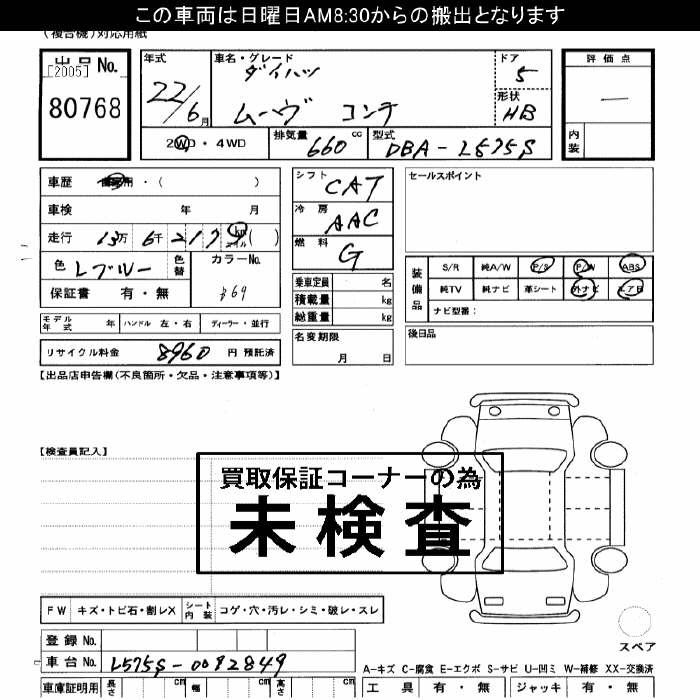 この車両は日曜日AM8:30からの搬出となります
(複合機)対応用紙
出品 No.
[2005]
80768
年式
22/6月
車名・グレード
ダイハツ
ムーヴ コンテ
ドア
5
形状
HB
評価点
—
内装
2WD・4WD
排気量 660 cc
型式 DBA-L575S
車歴 自家用・( )
車検 年 月
走行 13万 6千 217 km マイル ( )
色 Lブルー
色替
カラーNo.
保証書 有・無
モデル年式 年 ハンドル 左・右 ディーラー・並行
リサイクル料金 8960 円 預託済
シフト CAT
冷房 AAC
燃料 G
乗車定員 名
積載量 kg
総重量 kg
名変期限
月 日
セールスポイント
装備品
S/R 純A/W P/S P/W ABS
純TV 純ナビ 革シート 外ナビ エアB
ナビ型番:
後日品
【出品店申告欄(不良箇所・欠品・注意事項等)】
【検査員記入】
買取保証コーナーの為
未検査
FW キズ・トビ石・割レX シート内装 コゲ・穴・汚レ・シミ・破レ・スレ
スペア
登録 No.
車台 No. L575S-0082849
車庫証明用 長さ cm 幅 cm 高さ cm
A-キズ C-腐食 E-エクボ S-サビ U-凹ミ W-補修 XX-交換済
工具 有・無 ジャッキ 有・無